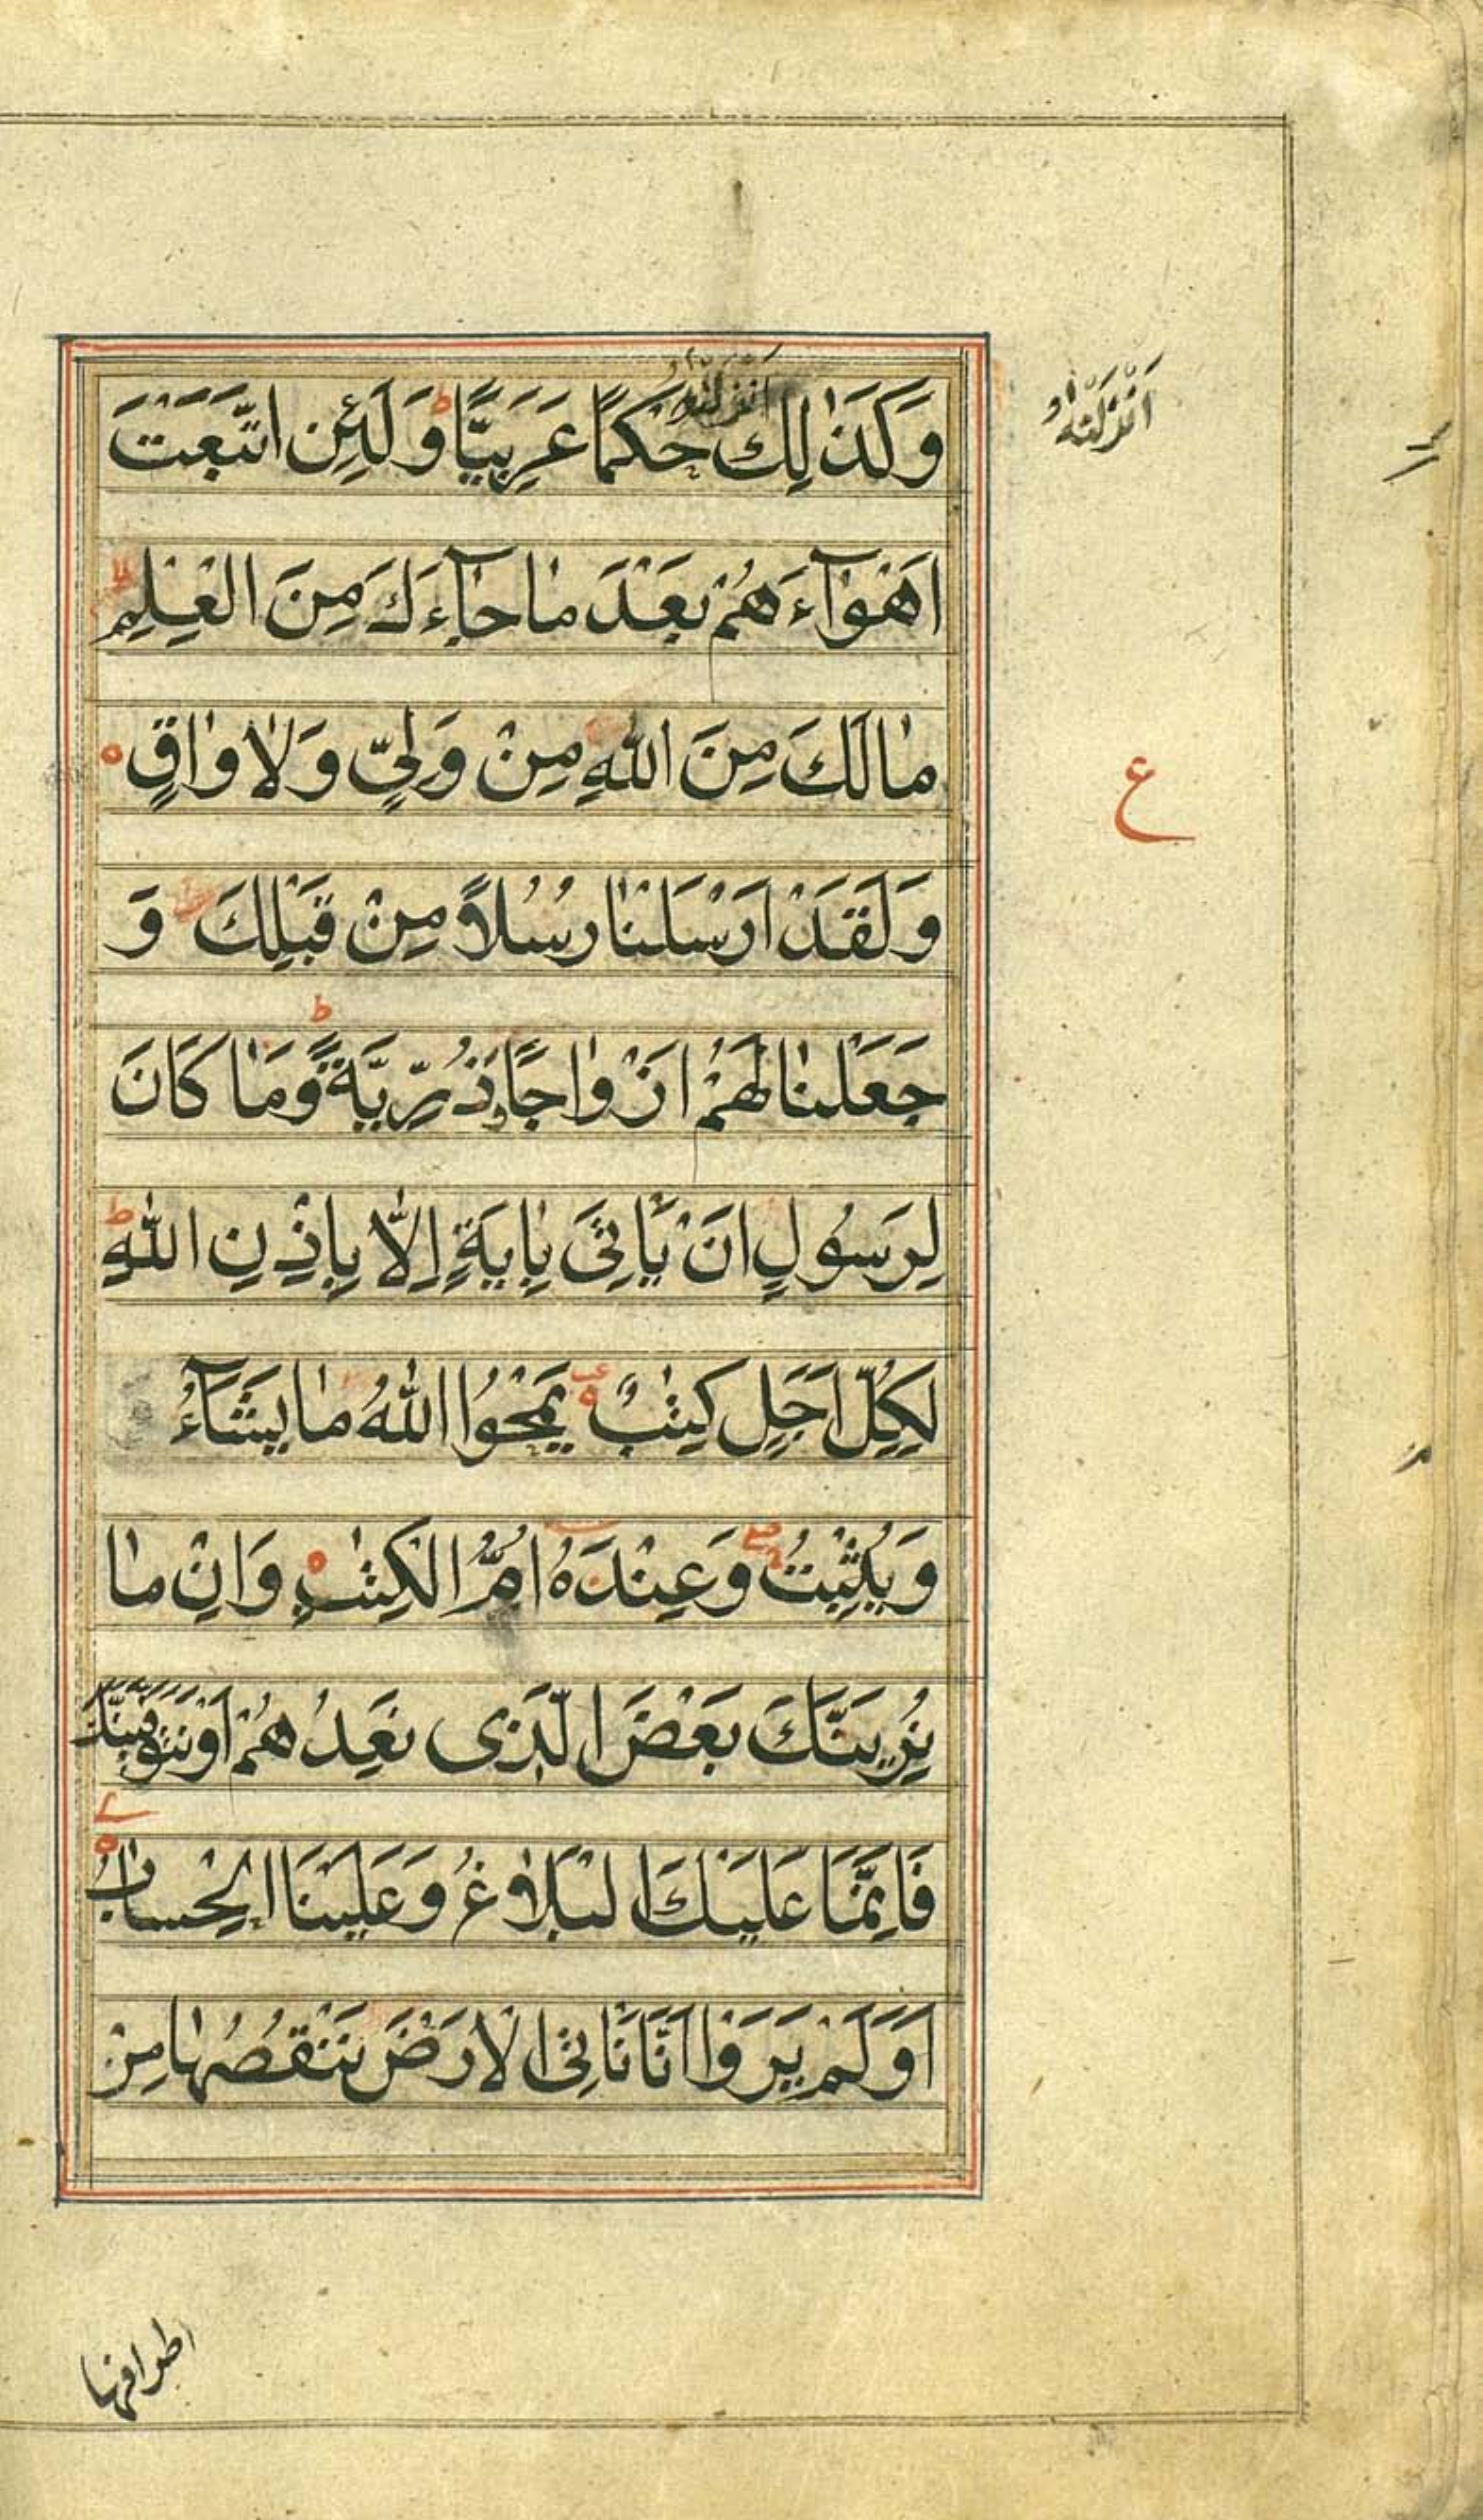 وَكَذٰلِكَ اَنْزَلْنٰهُ حُكْمًا عَرَبِيًّا ط وَلَئِنِ اتَّبَعْتَ
اَنْزَلْنٰهُ
اَهْوَآءَهُمْ بَعْدَ مٰا جٰآءَكَ مِنَ الْعِلْمِ لا
مٰا لَكَ مِنَ اللّٰهِ مِنْ وَلِيٍّ وَلٰا وٰاقٍ ه
ع
وَلَقَدْ اَرْسَلْنٰا رُسُلًا مِنْ قَبْلِكَ وَ
جَعَلْنٰا لَهُمْ اَزْوٰاجًا وَذُرِّيَّةً ط وَمٰا كَانَ
لِرَسُولٍ اَنْ يَأْتِىَ بِاٰيَةٍ اِلَّا بِاِذْنِ اللّٰهِ ط
لِكُلِّ اَجَلٍ كِتٰبٌ ه يَمْحُوا اللّٰهُ مٰا يَشَآءُ
وَيُثْبِتُ وَعِنْدَهُ اُمُّ الْكِتٰبِ ه وَاِنْ مٰا
نُرِيَنَّكَ بَعْضَ الَّذِى نَعِدُهُمْ اَوْ نَتَوَفَّيَنَّكَ
فَاِنَّمَا عَلَيْكَ الْبَلٰاغُ وَعَلَيْنَا الْحِسٰابُ ه
اَوَلَمْ يَرَوْا اَنَّا نَأْتِى الْاَرْضَ نَنْقُصُهٰا مِنْ
اطرافها